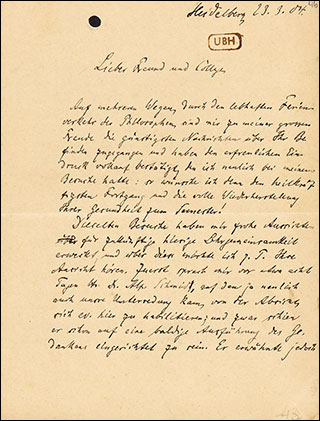 Heidelberg 23. 9. 04.
UBH
Lieber Freund und College
Auf mehreren Wegen, durch den lebhaften Ferien-
verkehr der Philosophen sind mir zu meiner grossen
Freude die günstigsten Nachrichten über Ihr Be
finden zugegangen und haben den erfreulichen Ein
druck vollauf bestätigt, den ich neulich bei meinem
Besuche hatte: so wünsche ich denn den
Fortgang und die volle Wiederherstellung
Ihrer Gesundheit zum Semester!
Dieselben Besuche haben mir frohe Aussichten
für zukünftige hiesige Lehrgemeinsamkeit
erweckt und über diese möchte ich z. T. Ihre
Ansicht hören. Zuerst sprach mir vor etwa acht
Tagen Hr. Dr. Schmidt, auf den ja neulich
auch unsre Unterredung kam, von der Absicht,
sich ev. hier zu habilitieren; und zwar schien
er schon auf eine baldige Ausführung des Ge-
dankens eingerichtet zu sein. Er erwähnte jedoch